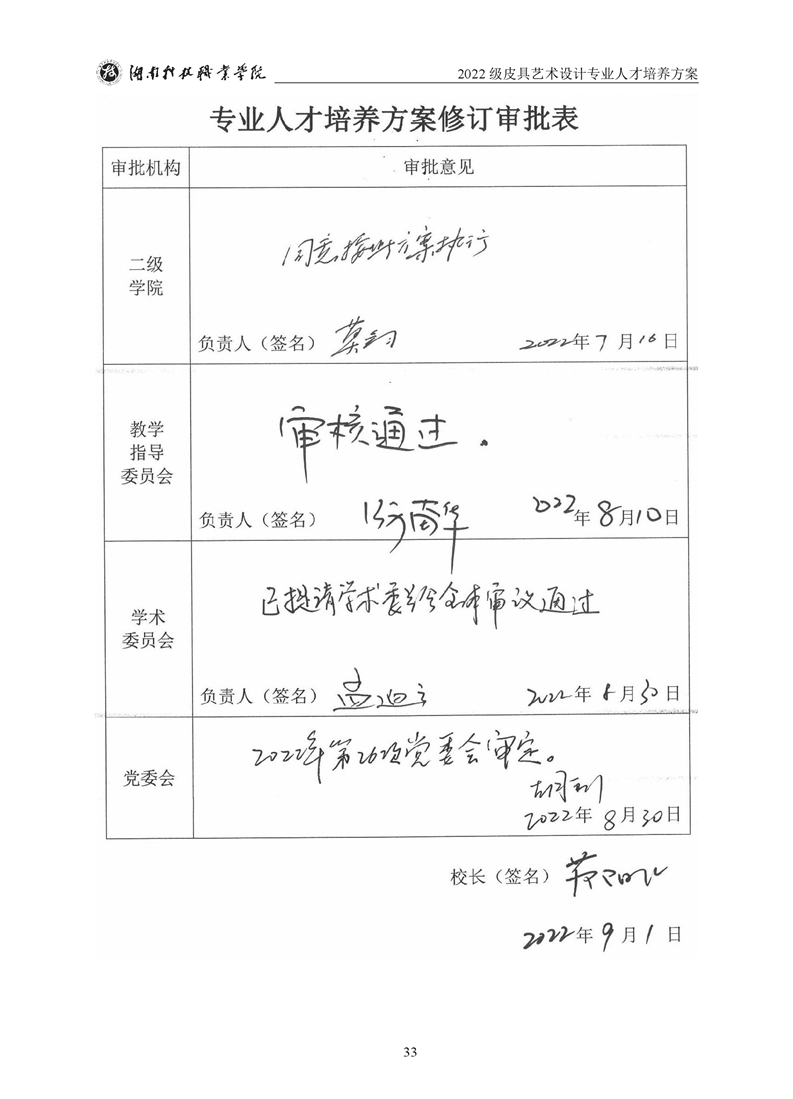 湖南科技职业学院
2022 级皮具艺术设计专业人才培养方案
专业人才培养方案修订审批表
审批机构
审批意见
二级
学院
同意按此方案执行
负责人（签名）
2022年 7 月 16 日
教学
指导
委员会
审核通过。
负责人（签名）
2022年 8 月 10 日
学术
委员会
已提请学术委员会全体审议通过
负责人（签名）
2022 年 8 月 30 日
党委会
2022年第26次党委会审定。
2022年 8 月 30 日
校长（签名）
2022年 9 月 1 日
33